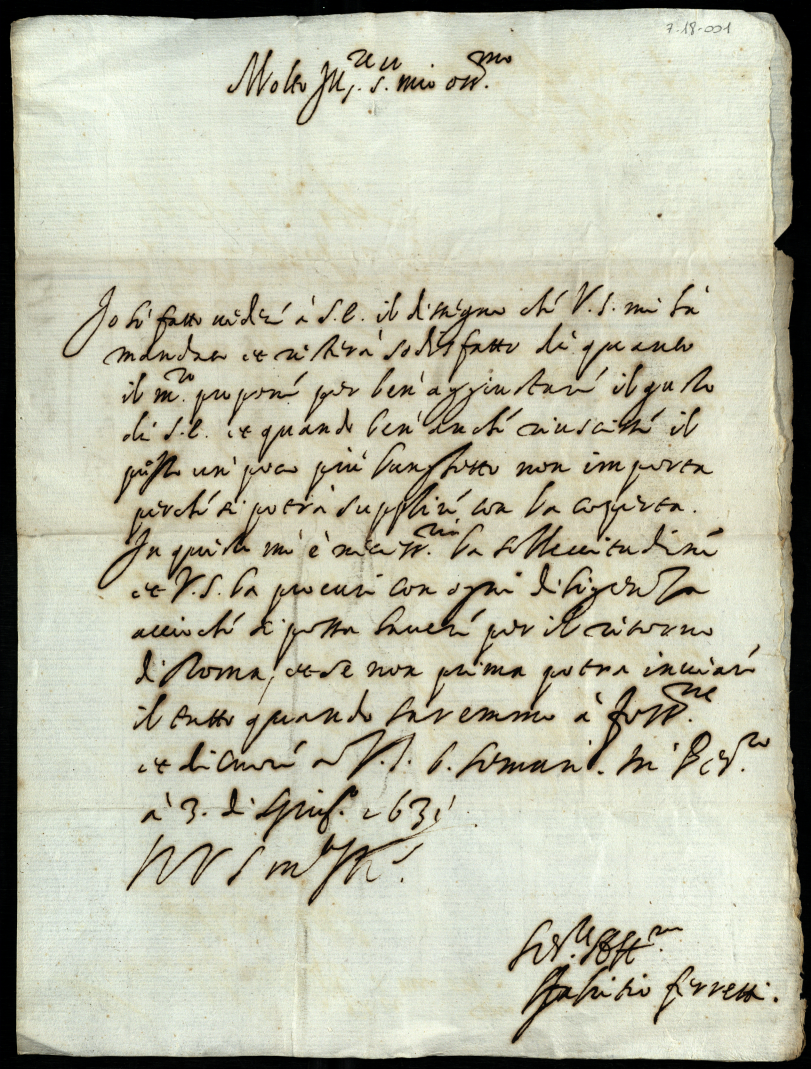 7-18-001
Molto Ill.re S. mio oss.mo
Io hò fatto uedere à S.E. il disegno che V.S. mi hà
mandato et resterà sodisfatto di quanto
il m.ro propone per ben' aggiustare il gusto
di S.E. et quando ben' anche riuscisse il
un' poco più lunghetto non importa
perche si potrà supplire con la coperta.
In questo mi è necess.ria la sollecitudine
et V.S. la procuri con ogni diligenza
accioche si possa hauere per il ritorno
di Roma, et se non prima potra inuiare
il tutto quando saremmo à
et di cuore à V.S. b. le mani. Di
à 3. di Giug.o 1631
Di V S molto Ill.re
Ser.re Aff.mo
Fabritio Ferretti.